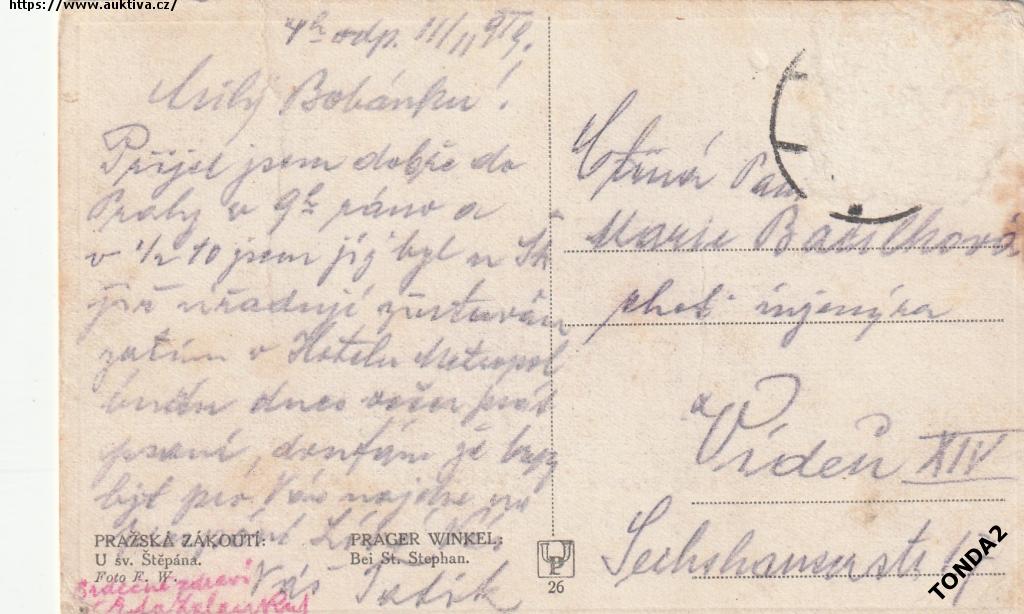 https://www.auktiva.cz/
4h odp. 11/11 919.
Milý Bobánku!
Přijel jsem dobře do
Prahy v 9h ráno a
v 1/2 10 jsem již byl u
již úřaduji zůstávám
zatím v Hotelu Metropol
budu dnes večer
psaní, doufám že
být pro Vás najdu
Váš Tatík
Srdečné zdraví
Ctěná Paní
Marie Bazilková
choť inženýra
Vídeň XIV
Sechshauserstr. 17
PRAŽSKÁ ZÁKOUTÍ:
U sv. Štěpána.
Foto F. W.
PRAGER WINKEL:
Bei St. Stephan.
26
TONDA2